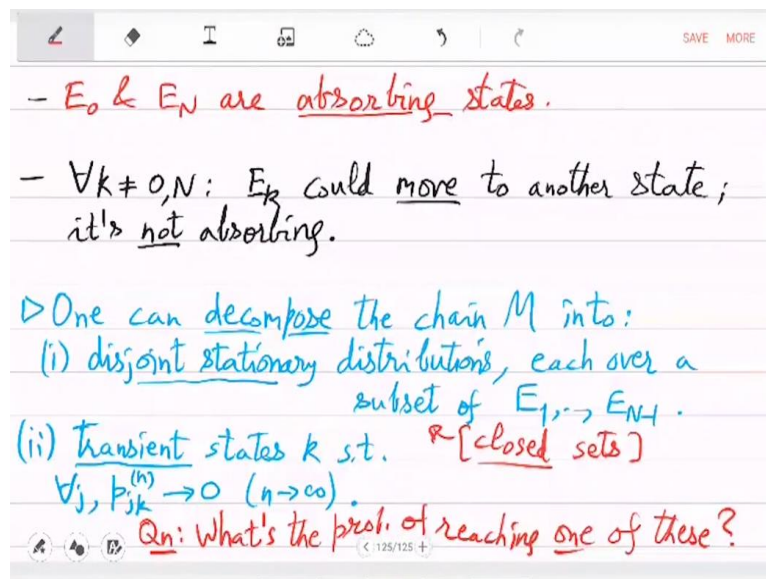 SAVE MORE
- E₀ & E_N are absorbing states.
- ∀k ≠ 0,N: E_k could move to another state;
it's not absorbing.
▷ One can decompose the chain M into:
(i) disjoint stationary distributions, each over a
subset of E₁,.., E_{N-1}.
(ii) transient states k s.t. [closed sets]
∀j, p_{jk}^{(n)} → 0 (n→∞).
Qn: What's the prob. of reaching one of these?
< 125/125 +